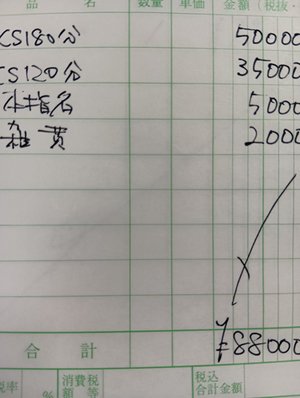 品名 数量 単価 金額(税抜・
CS180分 50000
CS120分 35000
本指名 5000
雑貨 2000
合計 ¥88000
税率 % 消費税額等 税込合計金額